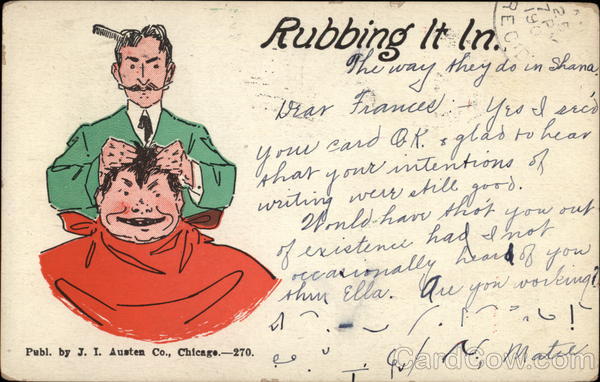 Rubbing It In.
REC'D
The way they do in Shana
Dear Frances - Yes I rec'd
your card O.K. & glad to hear
that your intentions of
writing were still good.
Would have tho't you out
of existence had I not
occasionally heard of you
thru Ella. Are you working?
Publ. by J. I. Austen Co., Chicago.—270.
CardCow.com